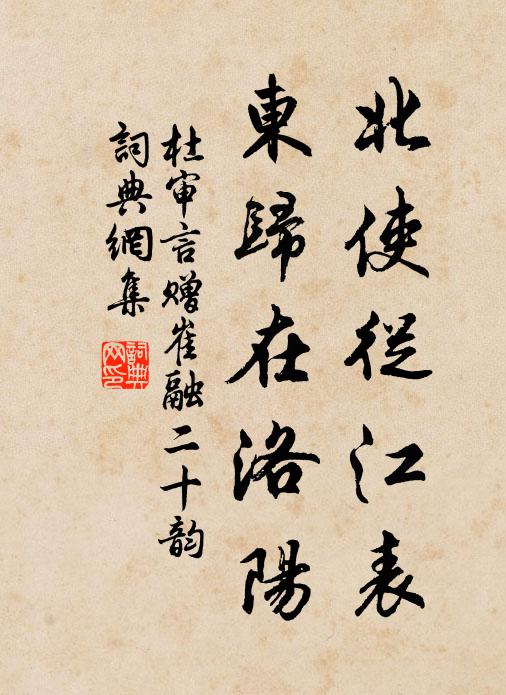 北使從江表
東歸在洛陽
杜审言赠崔融二十韵
詞典網集
詞典
网印